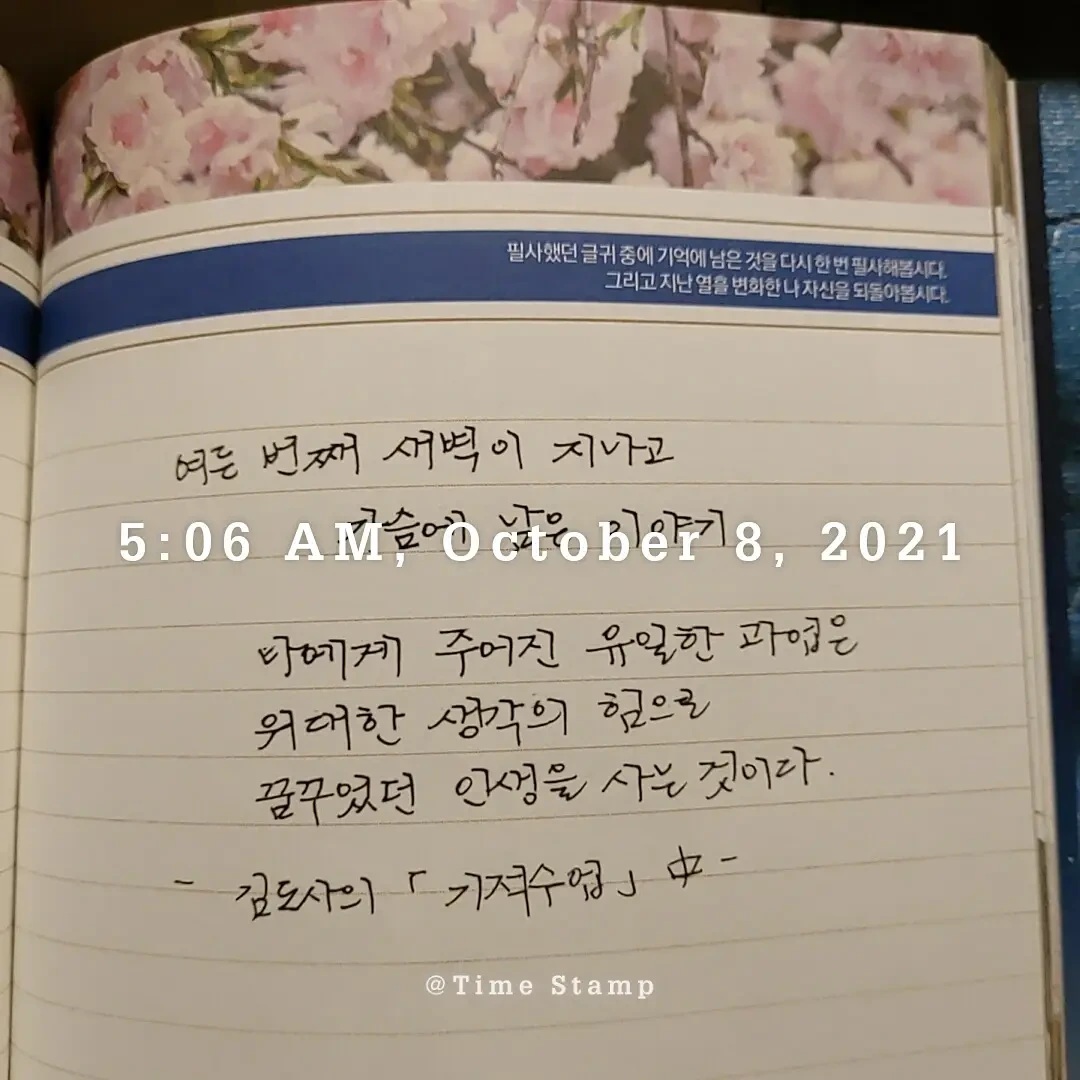 필사했던 글귀 중에 기억에 남은 것을 다시 한 번 필사해봅시다.
그리고 지난 열흘 변화한 나 자신을 되돌아봅시다.
여든 번째 새벽이 지나고
가슴에 남은 이야기
5:06 AM, October 8, 2021
나에게 주어진 유일한 과업은
위대한 생각의 힘으로
꿈꾸었던 인생을 사는 것이다.
- 김도사의 「기적수업」 中 -
@Time Stamp